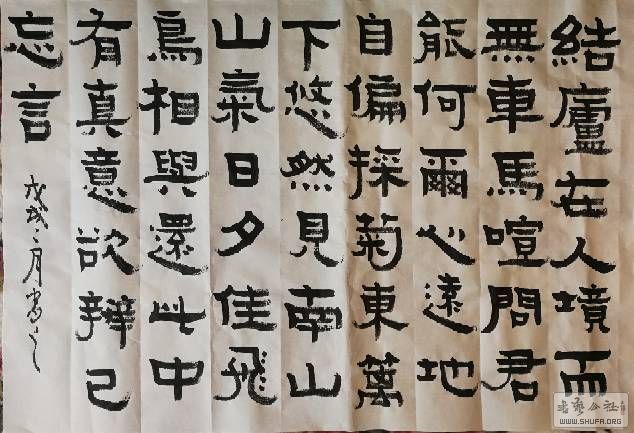 結廬在人境而
無車馬喧問君
能何爾心遠地
自偏採菊東萬
下悠然見南山
山氣日夕佳飛
鳥相與還此中
有真意欲辨已
忘言
戊戌二月書之
书艺公社
WWW.SHUFA.ORG